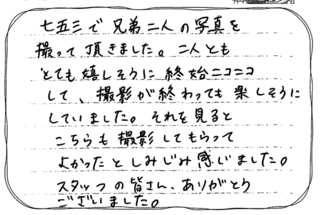 七五三で兄弟二人の写真を
撮って頂きました。二人とも
とても嬉しそうに終始ニコニコ
して、撮影が終わっても楽しそうに
していました。それを見ると
こちらも撮影してもらって
よかったとしみじみ感じました。
スタッフの皆さん、ありがとう
ございました。